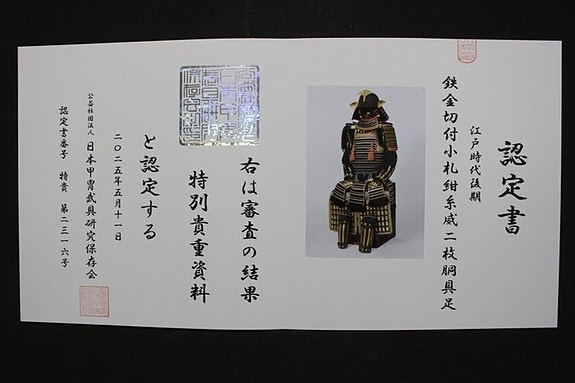 認定書
江戸時代後期
鉄金切付小札紺糸威二枚胴具足
右は審査の結果
特別貴重資料
と認定する
二〇二五年五月十一日
公益社団法人 日本甲冑武具研究保存会
認定書番号 特貴 第二三一六号